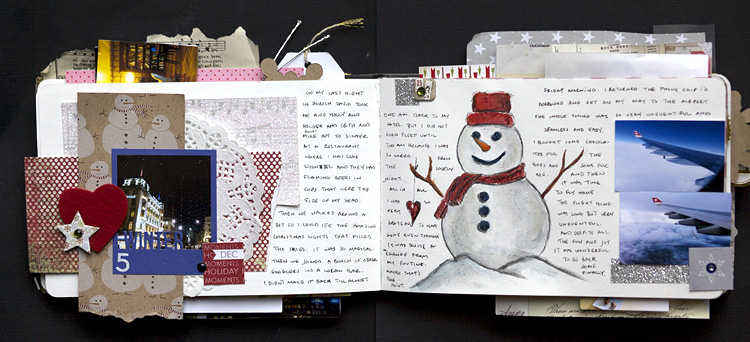 ON MY LAST NIGHT
IN ZURICH DAVID TOOK
ME AND HOLLY AND
HOLGER AND SETH AND
MIKE OUT TO DINNER
AT A RESTAURANT
WHERE I HAD SOME
AND THEY HAD
FLAMING BEERS IN
CUPS THAT WERE THE
SIZE OF MY HEAD.
THEN WE WALKED AROUND A
BIT SO I COULD SEE THE AMAZING
CHRISTMAS LIGHTS THAT FILLED
THE SKIES. IT WAS SO MAGICAL.
THEN WE JOINED A BUNCH OF OTHER
GOOGLERS IN A URBAN BAR.
I DIDN'T MAKE IT BACK TILL ALMOST
WINTER
5
MOMENTS
DEC
MOMENTS
HOLIDAY
MOMENTS
ONE AM. BACK TO MY
HOTEL. BUT I DID NOT
EVEN SLEEP UNTIL
AM BECAUSE I WAS
SO WIRED FROM
THE LOVELY
NIGHT.
ALL IN ALL
I WAS SO
VERY
GRATEFUL TO HAVE
GONE EVEN THOUGH
IT WAS QUITE A
CHANGE FROM
MY ROUTINE.
MAYBE THAT'S
THE
POINT.
FRIDAY MORNING. I RETURNED THE PHONE CHIP I'D
BORROWED AND SET ON MY WAY TO THE AIRPORT.
THE WHOLE THING WAS SO VERY UNEVENTFUL AND
SEAMLESS AND EASY.
I BOUGHT SOME CHOCOLA-
TES FOR THE
BOYS AND SOME FOR
ME. AND THEN
IT WAS TIME
TO FLY HOME.
THE FLIGHT HOME
WAS LONG BUT VERY
UNEVENTFUL.
AND DESPITE ALL
THE FUN AND JOY
IT WAS WONDERFUL
TO BE BACK
HOME
FINALLY.